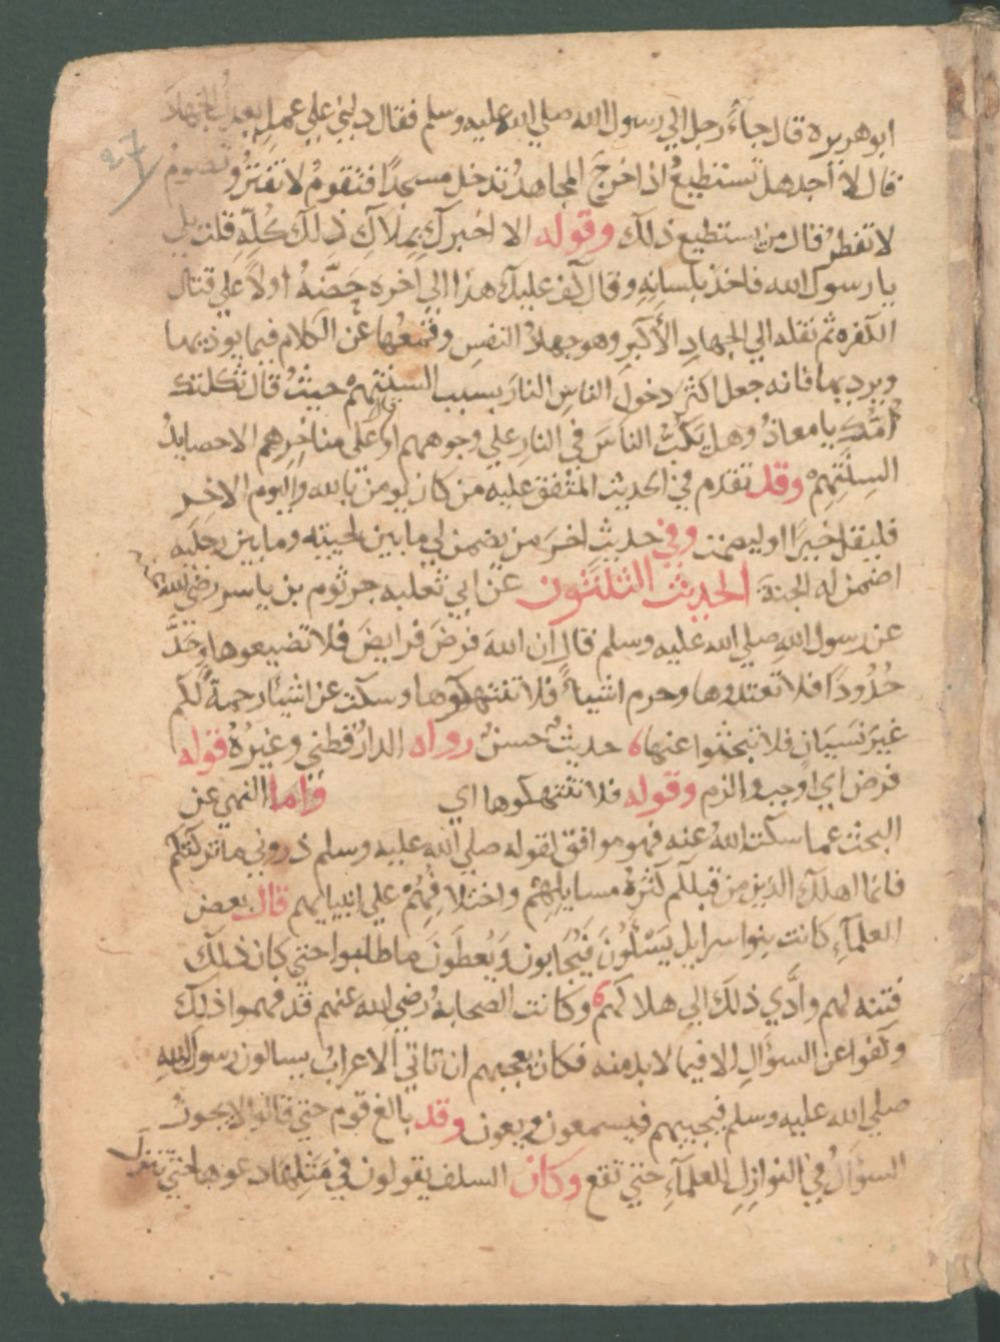 27
ابو هريره قال جاء رجل الي رسول الله صلي الله عليه وسلم فقال دلني علي عمل يعدل الجهاد
قال لا اجد هل تستطيع اذا خرج المجاهد تدخل مسجدا فتقوم لا تفتر وتصوم
لا تفطر قال من يستطيع ذلك وقوله الا اخبرك بملاك ذلك كله قلت بلي
يا رسول الله فاخذ بلسانه وقال كف عليك هذا الي اخره حضه اولا علي قتال
الكفره ثم نقله الي الجهاد الأكبر وهو جهاد النفس وقمعها عن الكلام فيما يوذيها
ويرديها فانه جعل اكثر دخول الناس النار بسبب السنتهم حيث قال ثكلتك
امك يا معاذ وهل يكب الناس في النار علي وجوههم او علي مناخرهم الا حصايد
السنتهم وقد تقدم في الحديث المتفق عليه من كان يومن بالله واليوم الاخر
فليقل خيرا او ليصمت وفي حديث اخر من يضمن لي ما بين لحييته وما بين رجليه
اضمن له الجنة الحديث الثلثون عن ابي ثعلبه جرثوم بن ياسر رضي الله عنه
عن رسول الله صلي الله عليه وسلم قال ان الله فرض فرايض فلا تضيعوها وحد
حدودا فلا تعتدوها وحرم اشياء فلا تنتهكوها وسكت عن اشيا رحمة لكم
غير نسيان فلا تبحثوا عنها حديث حسن رواه الدارقطني وغيره قوله
فرض اي اوجب والزم وقوله فلا تنتهكوها اي واما النهي عن
البحث عما سكت الله عنه فهو موافق لقوله صلي الله عليه وسلم ذروني ما تركتكم
فانما اهلك الذين من قبلكم كثرة مسايلهم واختلافهم علي انبيايهم قال بعض
العلمآء كانت بنوا سرايل يسئلون فيجابون ويعطون ما طلبوا حتي كان ذلك
فتنه لهم وادي ذلك الي هلاكهم وكانت الصحابة رضي الله عنهم قد فهموا ذلك
وكفوا عن السؤال الا فيما لا بد منه فكان يعجبهم ان تاتي الاعراب يسالون رسول الله
صلي الله عليه وسلم فيجيبهم فيسمعون ويعون وقد بالغ قوم حتي قالوا لا يجوز
السؤال في النوازل للعلمآء حتي تقع وكان السلف يقولون في مثلها دعوها حتي تنزل